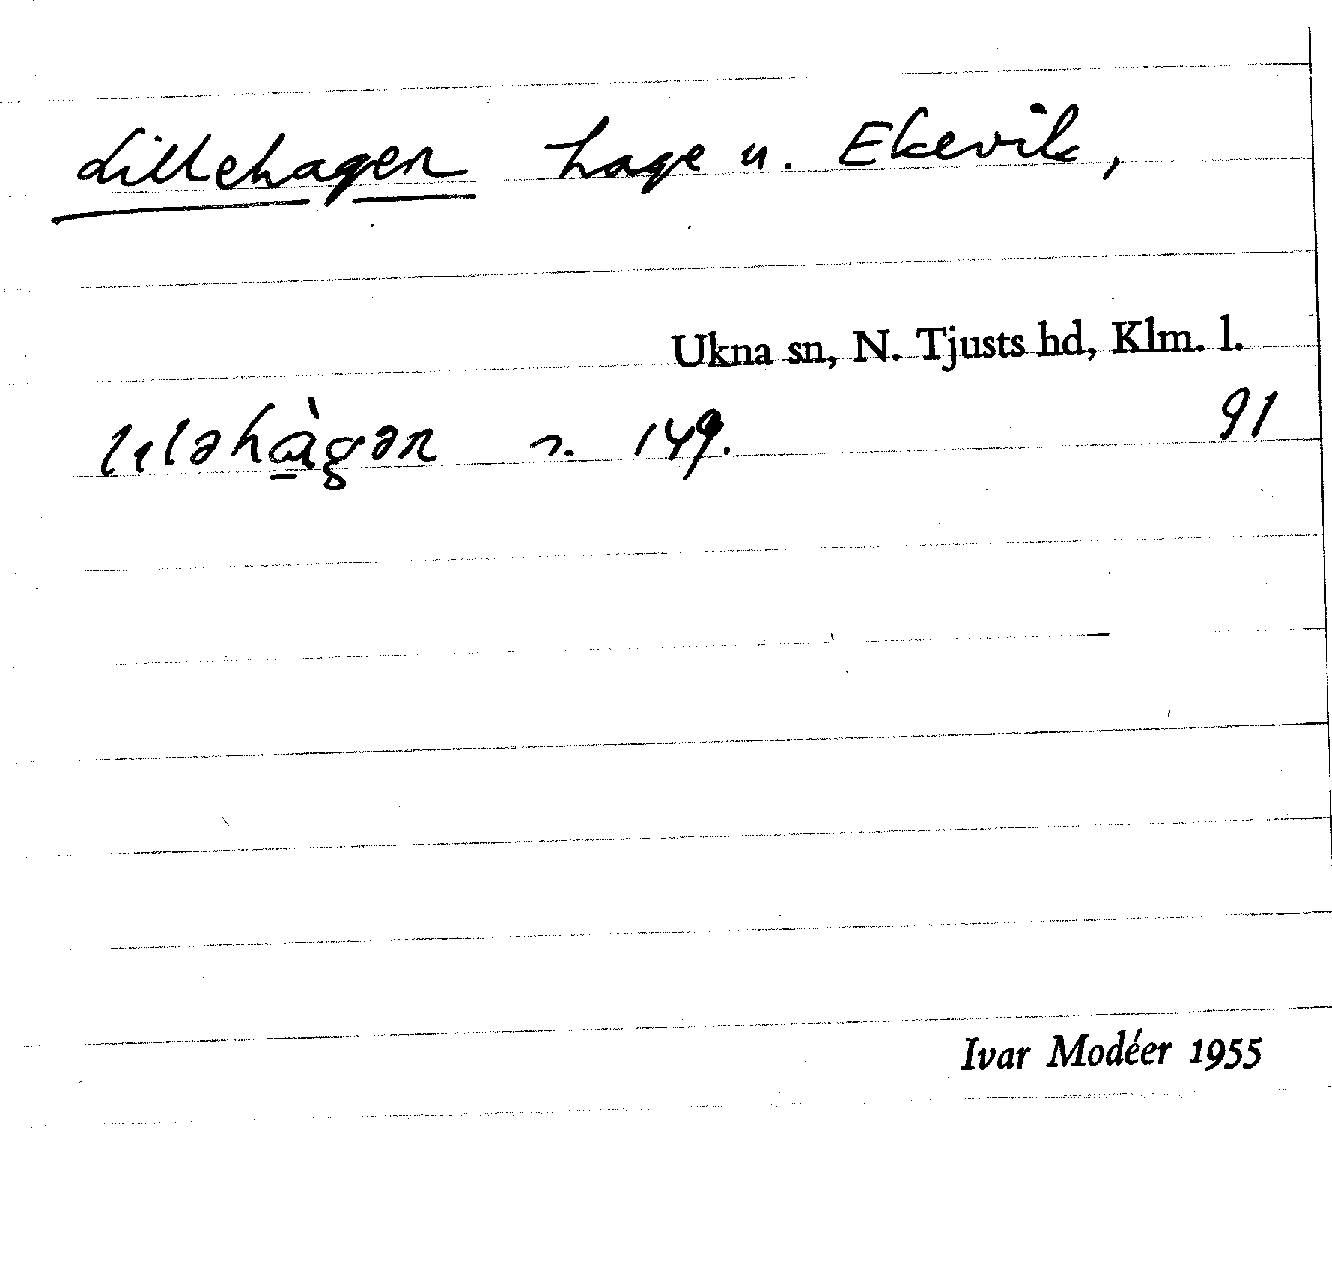 Lillehagen hage u. Ekevik,
Ukna sn, N. Tjusts hd, Klm. l.
lıləhà̱gən n. 149. 91
Ivar Modéer 1955